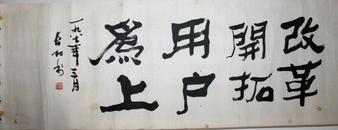 改革
開拓
用户
爲上
一九八七年三月